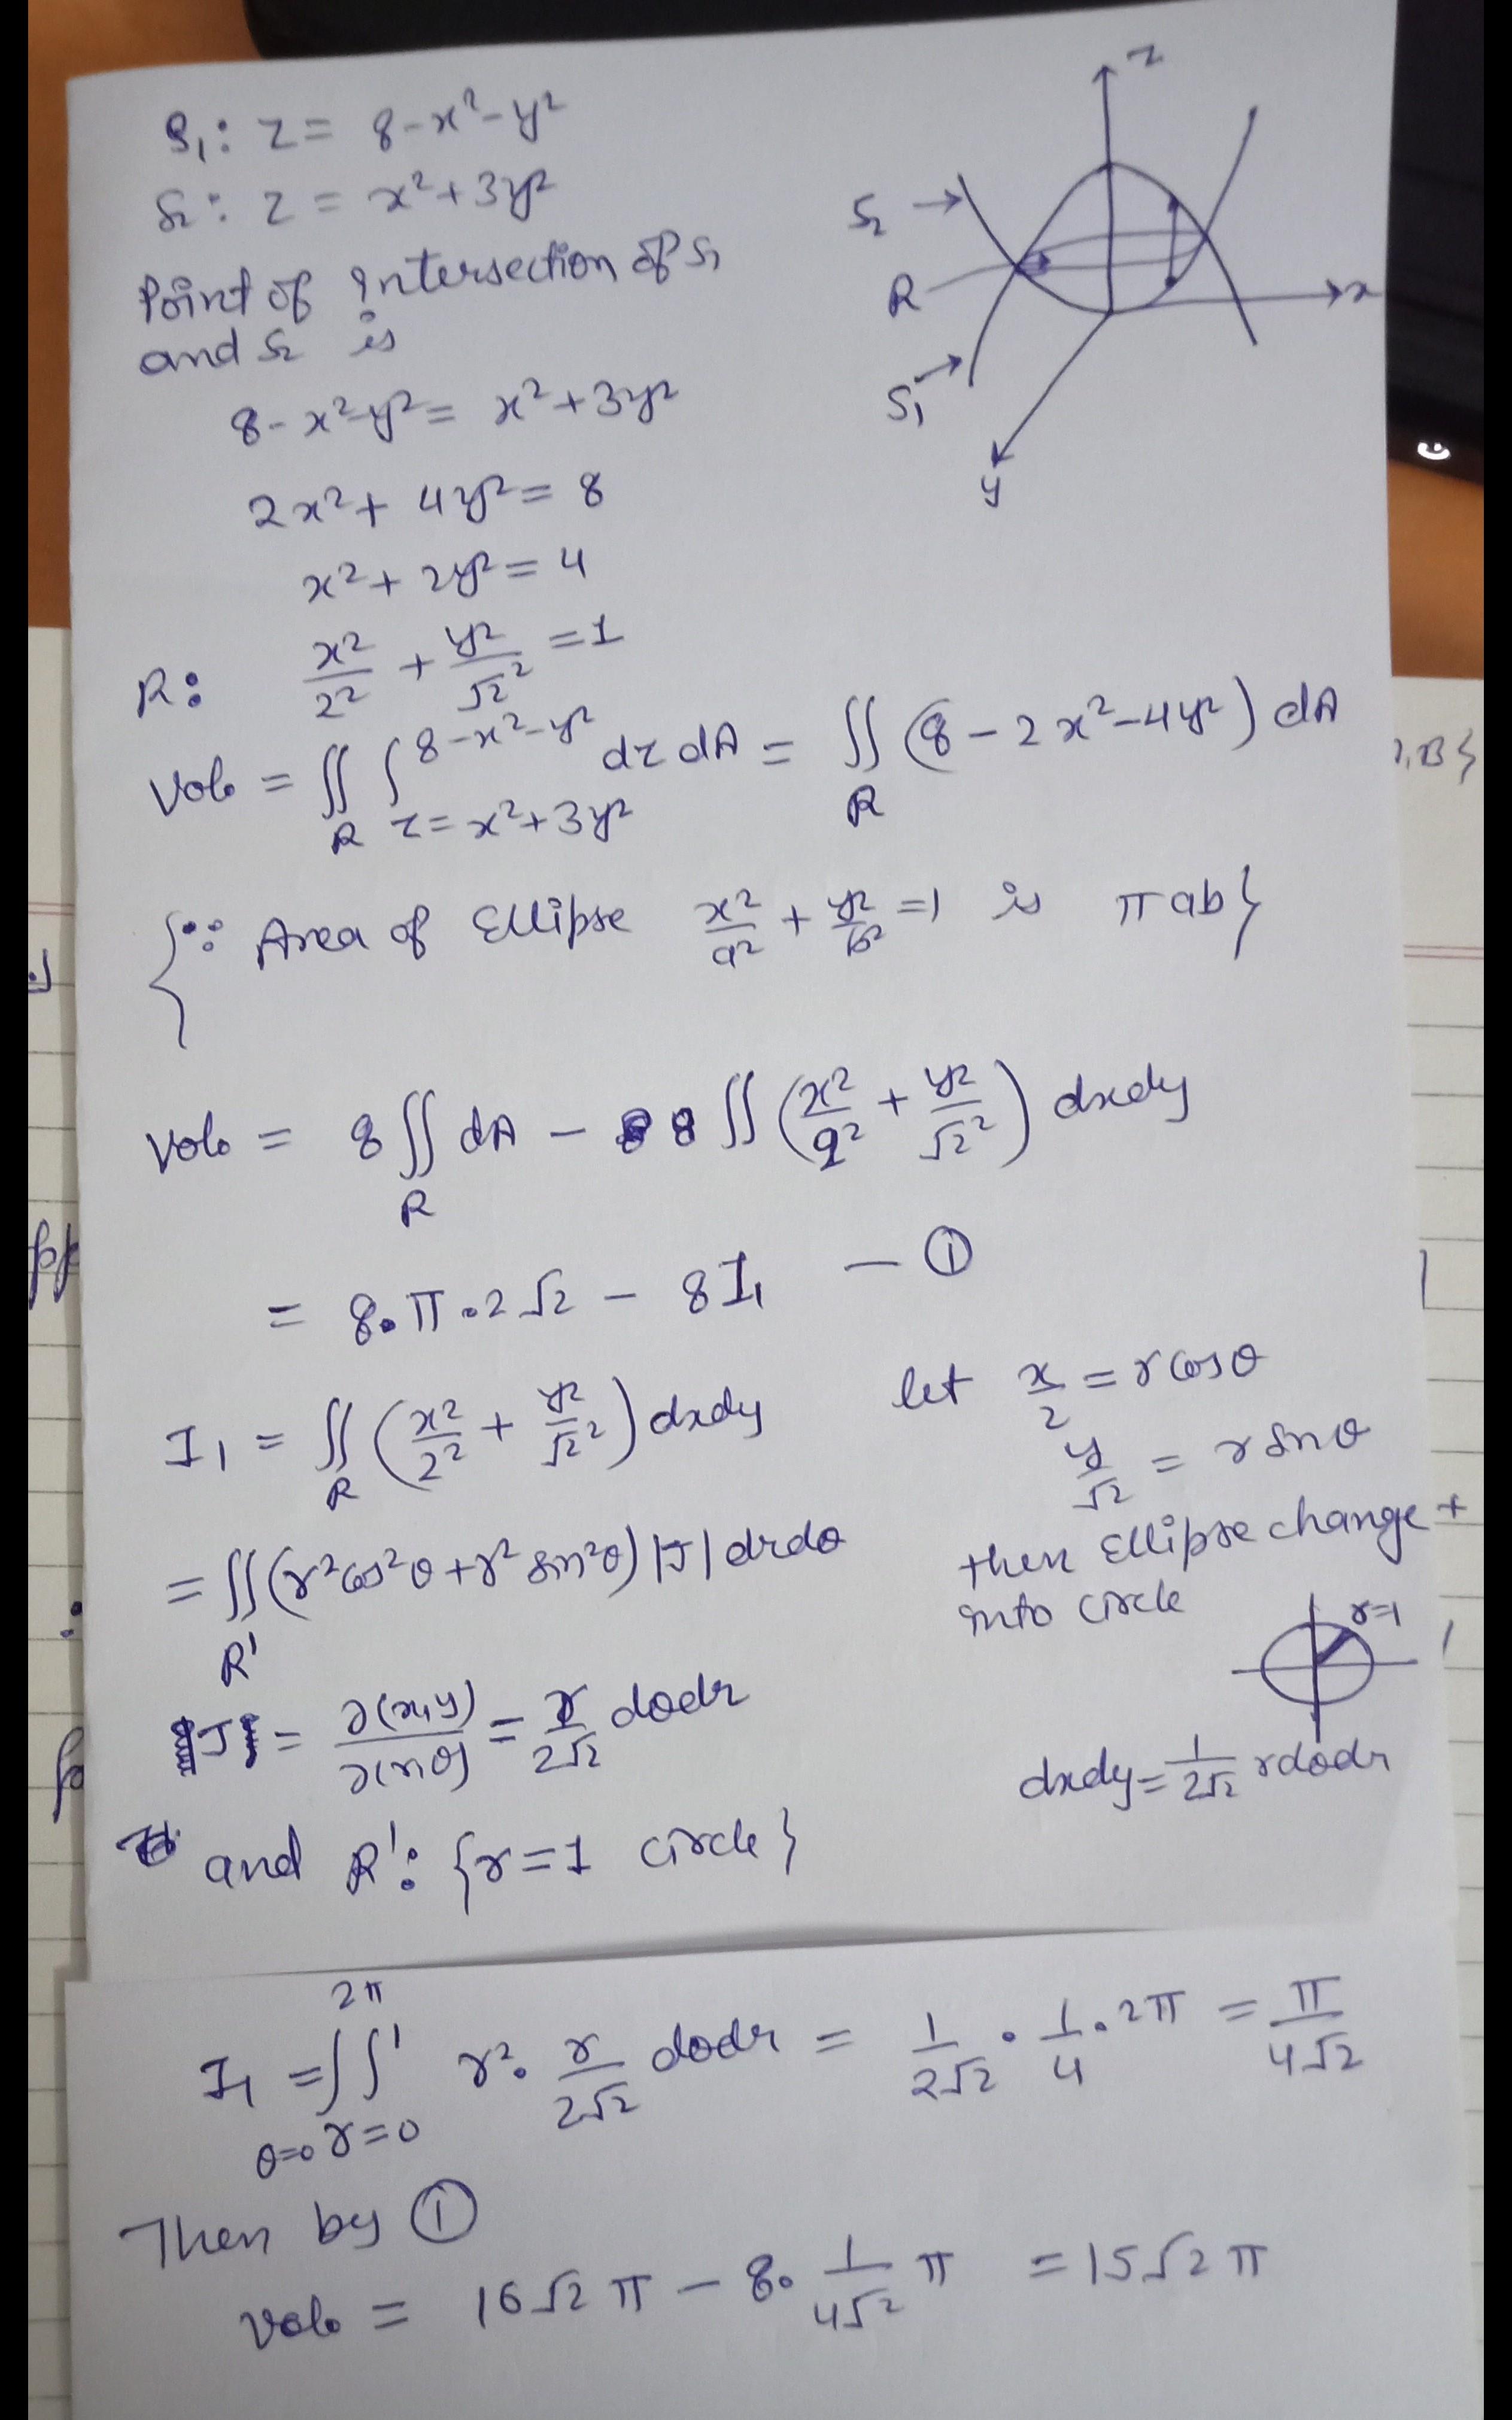 S₁: z = 8-x²-y²
S₂: z = x²+3y²
Point of Intersection of S₁
and S₂ is
8-x²-y² = x²+3y²
2x²+ 4y² = 8
x²+ 2y² = 4
R: x²/2² + y²/√2² = 1
z
S₂ →
R
x
S₁ →
y
Vol. = ∬_R ∫_{z=x²+3y²}^{8-x²-y²} dz dA = ∬_R (8-2x²-4y²) dA
{∵ Area of Ellipse x²/a² + y²/b² = 1 is πab}
Vol. = 8∬_R dA - 8∬(x²/2² + y²/√2²) dxdy
= 8.π.2√2 - 8I₁ — ①
I₁ = ∬_R (x²/2² + y²/√2²) dxdy
let x/2 = r cosθ
y/√2 = r sinθ
then Ellipse change
into circle
r=1
= ∬_R' (r²cos²θ + r² sin²θ) |J| drdθ
J = ∂(x,y)/∂(r,θ) = r/2√2 dθdr
dxdy = 1/2√2 rdθdr
and R': {r=1 circle}
I₁ = ∫_{θ=0}^{2π} ∫_{r=0}^{1} r². r/2√2 dθdr = 1/2√2 . 1/4 . 2π = π/4√2
Then by ①
Vol. = 16√2 π - 8. 1/4√2 π = 15√2 π